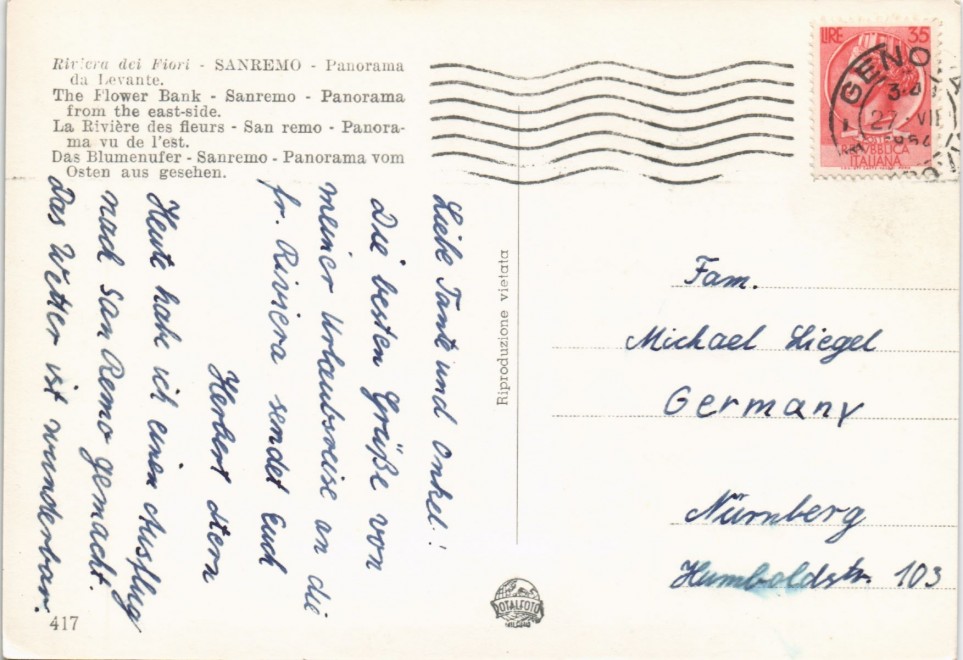 Riviera dei Fiori - SANREMO - Panorama
da Levante.
The Flower Bank - Sanremo - Panorama
from the east-side.
La Rivière des fleurs - San remo - Panora-
ma vu de l'est.
Das Blumenufer - Sanremo - Panorama vom
Osten aus gesehen.
LIRE 35
REPUBBLICA
ITALIANA
GENOVA
Liebe Tante und Onkel!
Die besten Grüße von
meiner Urlaubsreise an die
fr. Riviera sendet Euch
Herbert Stern
Heute habe ich einen Ausflug
nach San Remo gemacht.
Das Wetter ist wunderbar.
Riproduzione vietata
Fam.
Michael Liegel
Germany
Nürnberg
Humboldstr. 103
DOTALFOTO
MILANO
417